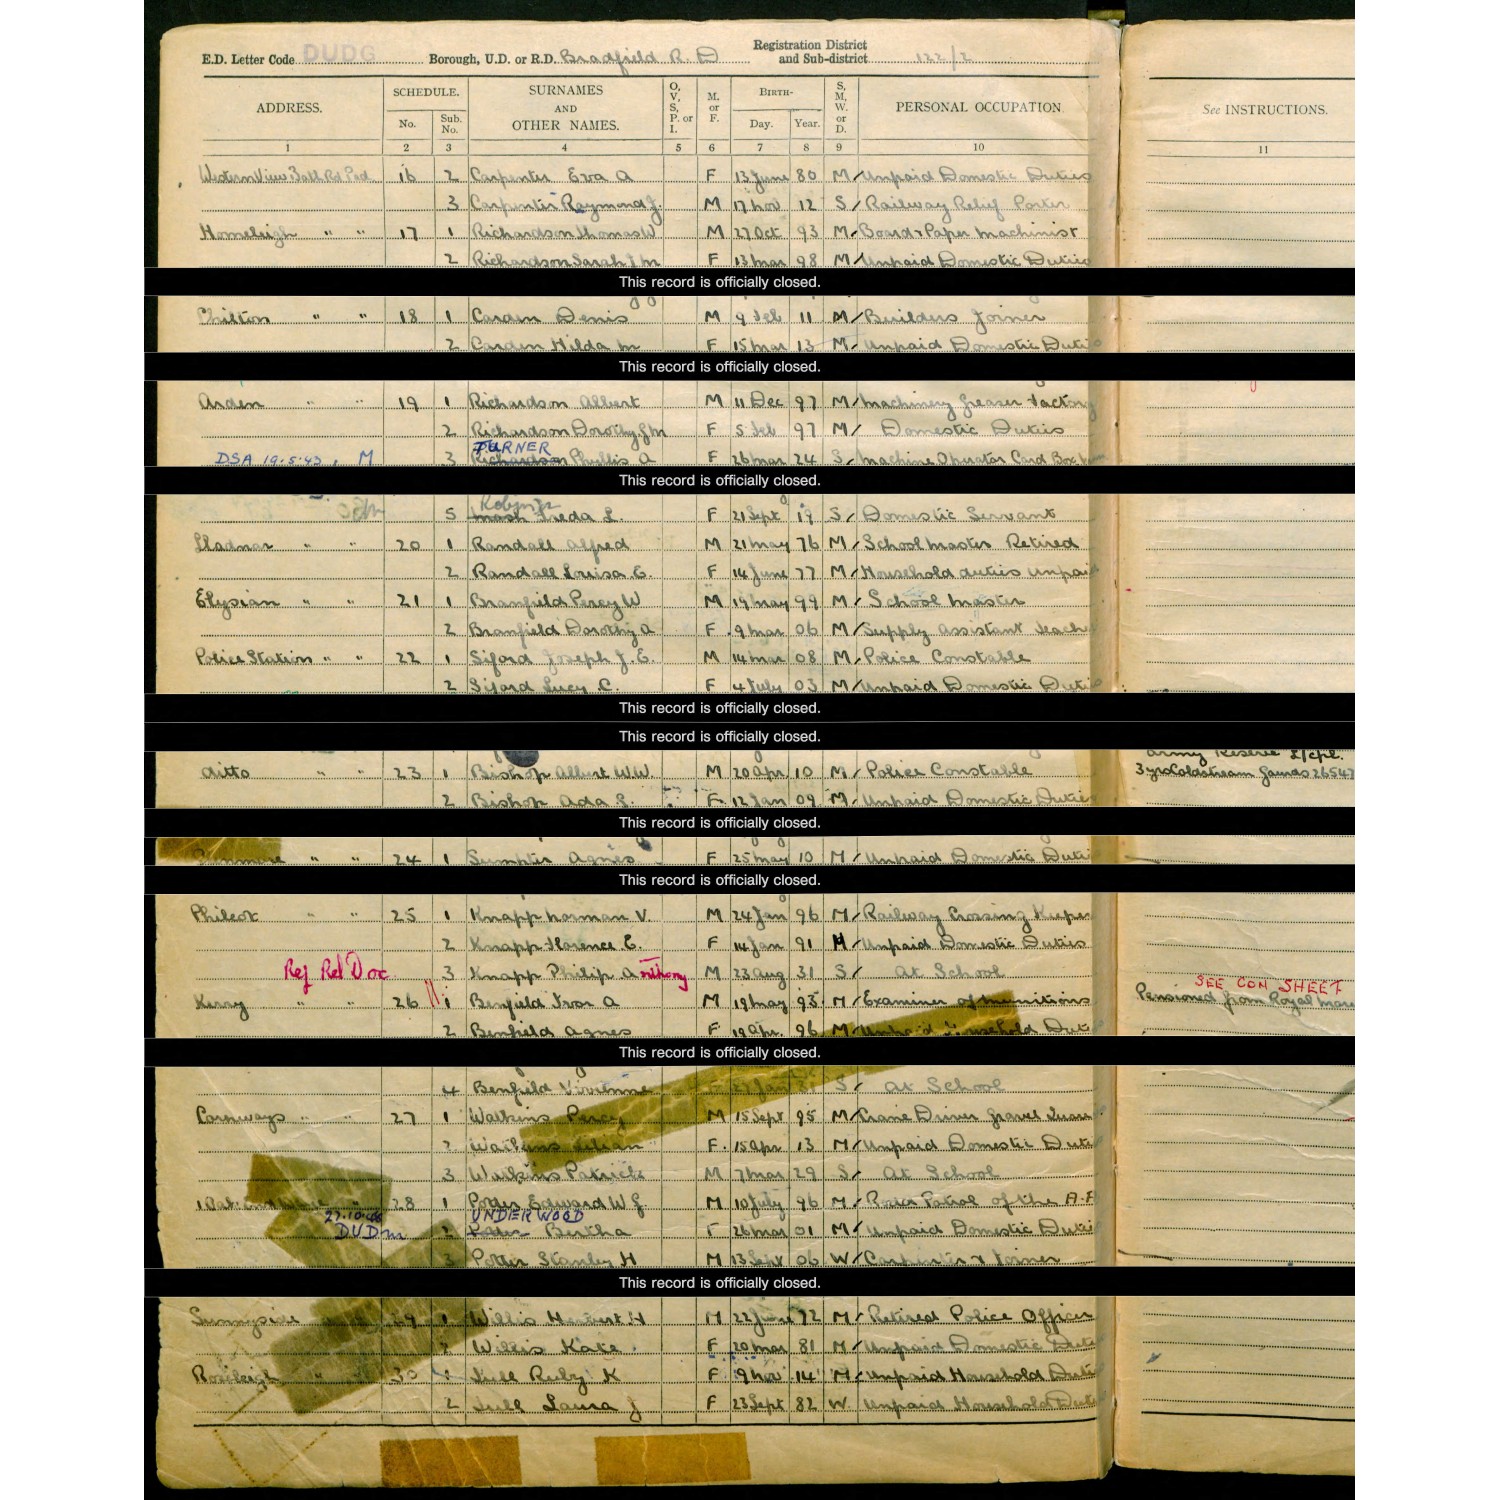 E.D. Letter Code DUDG Borough, U.D. or R.D. Bradfield R. D Registration District and Sub-district 122/2
ADDRESS. SCHEDULE. No. Sub. No. SURNAMES AND OTHER NAMES. O, V, S, P. or I. M. or F. BIRTH- Day. Year. S, M, W. or D. PERSONAL OCCUPATION See INSTRUCTIONS.
1 2 3 4 5 6 7 8 9 10 11
Western View Bath Rd Pad 16 2 Carpenter Eva A F 13 June 80 M Unpaid Domestic Duties
3 Carpenter Raymond J. M 17 Nov 12 S Railway Relief Porter
Homeleigh " " 17 1 Richardson Thomas W M 27 Oct 93 M Board & Paper Machinist
2 Richardson Sarah J M F 13 Mar 98 M Unpaid Domestic Duties
This record is officially closed.
Chilton " " 18 1 Carden Denis M 9 Feb 11 M Builders Joiner
2 Carden Hilda M F 15 Mar 13 M Unpaid Domestic Duties
This record is officially closed.
Arden " " 19 1 Richardson Albert M 11 Dec 97 M Machinery Greaser Factory
2 Richardson Dorothy G M F 5 Feb 97 M Domestic Duties
TURNER
DSA 19.5.43. M 3 Richardson Phyllis A F 26 Mar 24 S Machine Operator Card Box
This record is officially closed.
5 Nash Freda L. F 21 Sept 19 S Domestic Servant
Lladnar " " 20 1 Randall Alfred M 21 May 76 M School Master Retired
2 Randall Louisa E. F 14 June 77 M Household duties unpaid
Elysian " " 21 1 Branfield Percy W M 19 May 99 M School Master
2 Branfield Dorothy A F 9 Mar 06 M Supply Assistant Teacher
Police Station " " 22 1 Siford Joseph J. E. M 14 Mar 08 M Police Constable
2 Siford Lucy C. F 4 July 03 M Unpaid Domestic Duties
This record is officially closed.
This record is officially closed.
Army Reserve L/cpl.
ditto " " 23 1 Bishop Albert W.W. M 20 Apr 10 M Police Constable 3 yrs Coldstream Guards 26547
2 Bishop Ada S. F 12 Jan 09 M Unpaid Domestic Duties
This record is officially closed.
" " 24 1 Sumpter Agnes F 25 May 10 M Unpaid Domestic Duti
This record is officially closed.
Philcot " " 25 1 Knapp Norman V. M 24 Jan 96 M Railway Crossing Keeper
2 Knapp Florence E. F 14 Jan 91 M Unpaid Domestic Duties
Ref Rel Doc 3 Knapp Philip Anthony M 23 Aug 31 S At School
SEE CON SHEET
Kerry " " 26 1 Benfield Ivor A M 19 May 93 M Examiner of Munitions Pensioned from Royal Mar
2 Benfield Agnes F 19 Apr. 96 M Unpaid Household Dut
This record is officially closed.
4 Benfield Vivienne F 27 Jan 31 S At School
Carraways " " 27 1 Watkins Percy M 15 Sept 95 M Crane Driver Gravel
2 Watkins Lilian F 15 Apr 13 M Unpaid Domestic Duti
3 Watkins Patrick M 7 Mar 29 S At School
28 1 Potter Edward W J. M 10 July 96 M Road Patrol of the A.A
27.10.48 UNDERWOOD
DUDM 2 Potter Bertha F 26 Mar 01 M Unpaid Domestic Duti
3 Potter Stanley H M 13 Sept 06 W Carpenter & Joiner
This record is officially closed.
Sunnyside 29 1 Willis Herbert H M 22 June 72 M Retired Police Officer
2 Willis Kate F 20 Mar 81 M Unpaid Domestic Duti
Roseleigh " " 30 1 Ruby K F 9 Nov 14 M Unpaid Household Duti
2 Laura J F 23 Sept 82 W Unpaid Household Duti